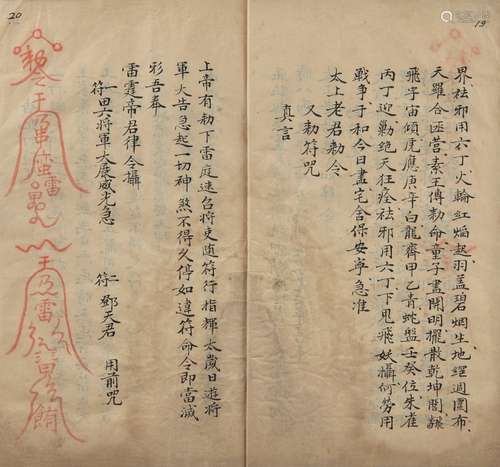 19
界祛邪用六丁火輪紅焰起羽蓋碧烟生地纙週圍布
天羅合匝營素王傳勅命童子晝開明擺散乾坤闇
飛子宙傾虎應庚辛白龍齊甲乙青蛇盤壬癸位朱雀
丙丁迎勦絶天狂痓祛邪用六丁下鬼飛妖攝何勞用
戰爭于和今日盡宅舍保安寧急准
太上老君勅令
又勅符咒
真言
20
上帝有勅下雷庭速召將吏随符行指揮太歲日遊將
軍火告急起一切神煞不得久停如違符命令即當滅
形吾奉
雷霆帝君律令攝
符一田六將軍大展威光急
符二鄧天君 用前咒